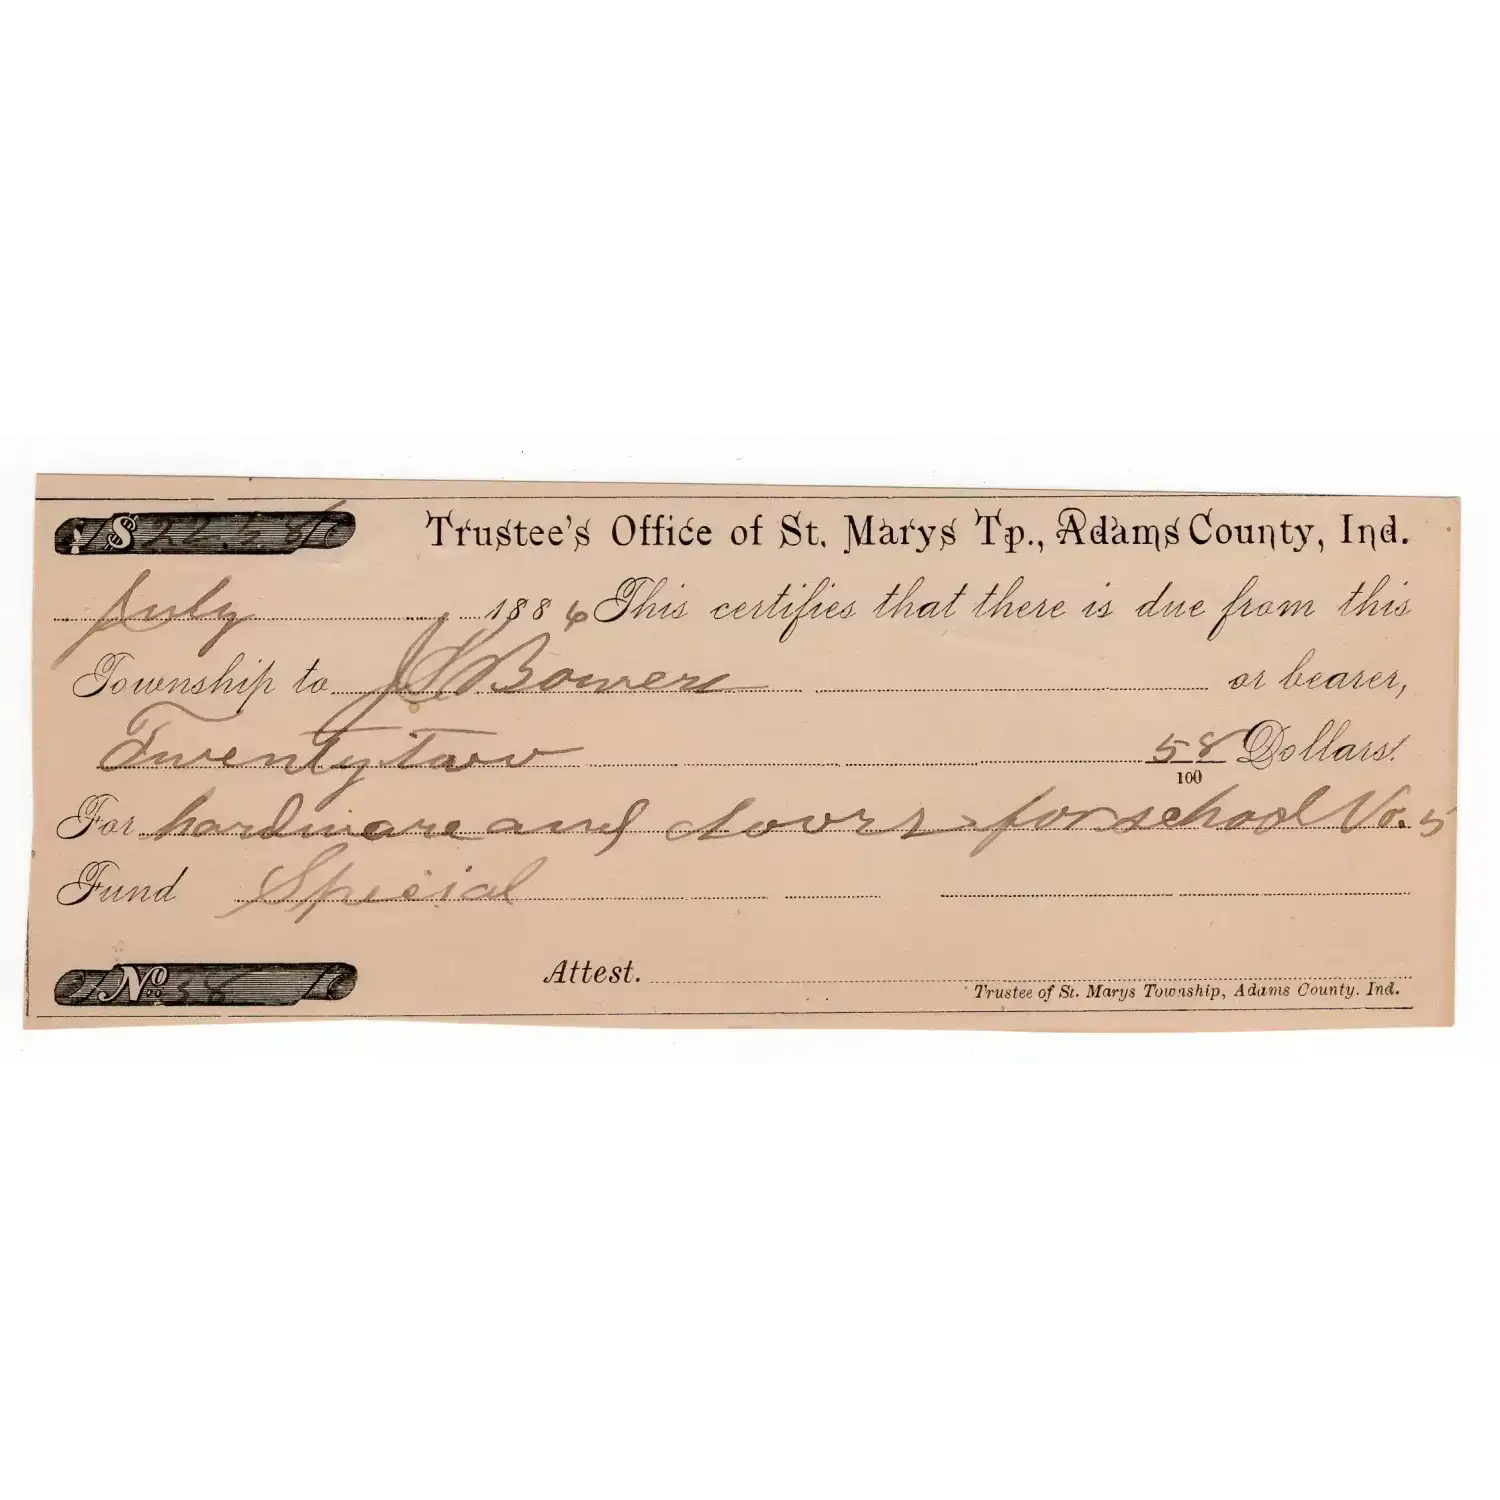 $ 22.58
Trustee's Office of St. Marys Tp., Adams County, Ind.
July 1886 This certifies that there is due from this
Township to J S Bowers or bearer,
Twenty two 58/100 Dollars.
For hardware and doors for school No. 5
Fund Special
No. 38
Attest.
Trustee of St. Marys Township, Adams County. Ind.